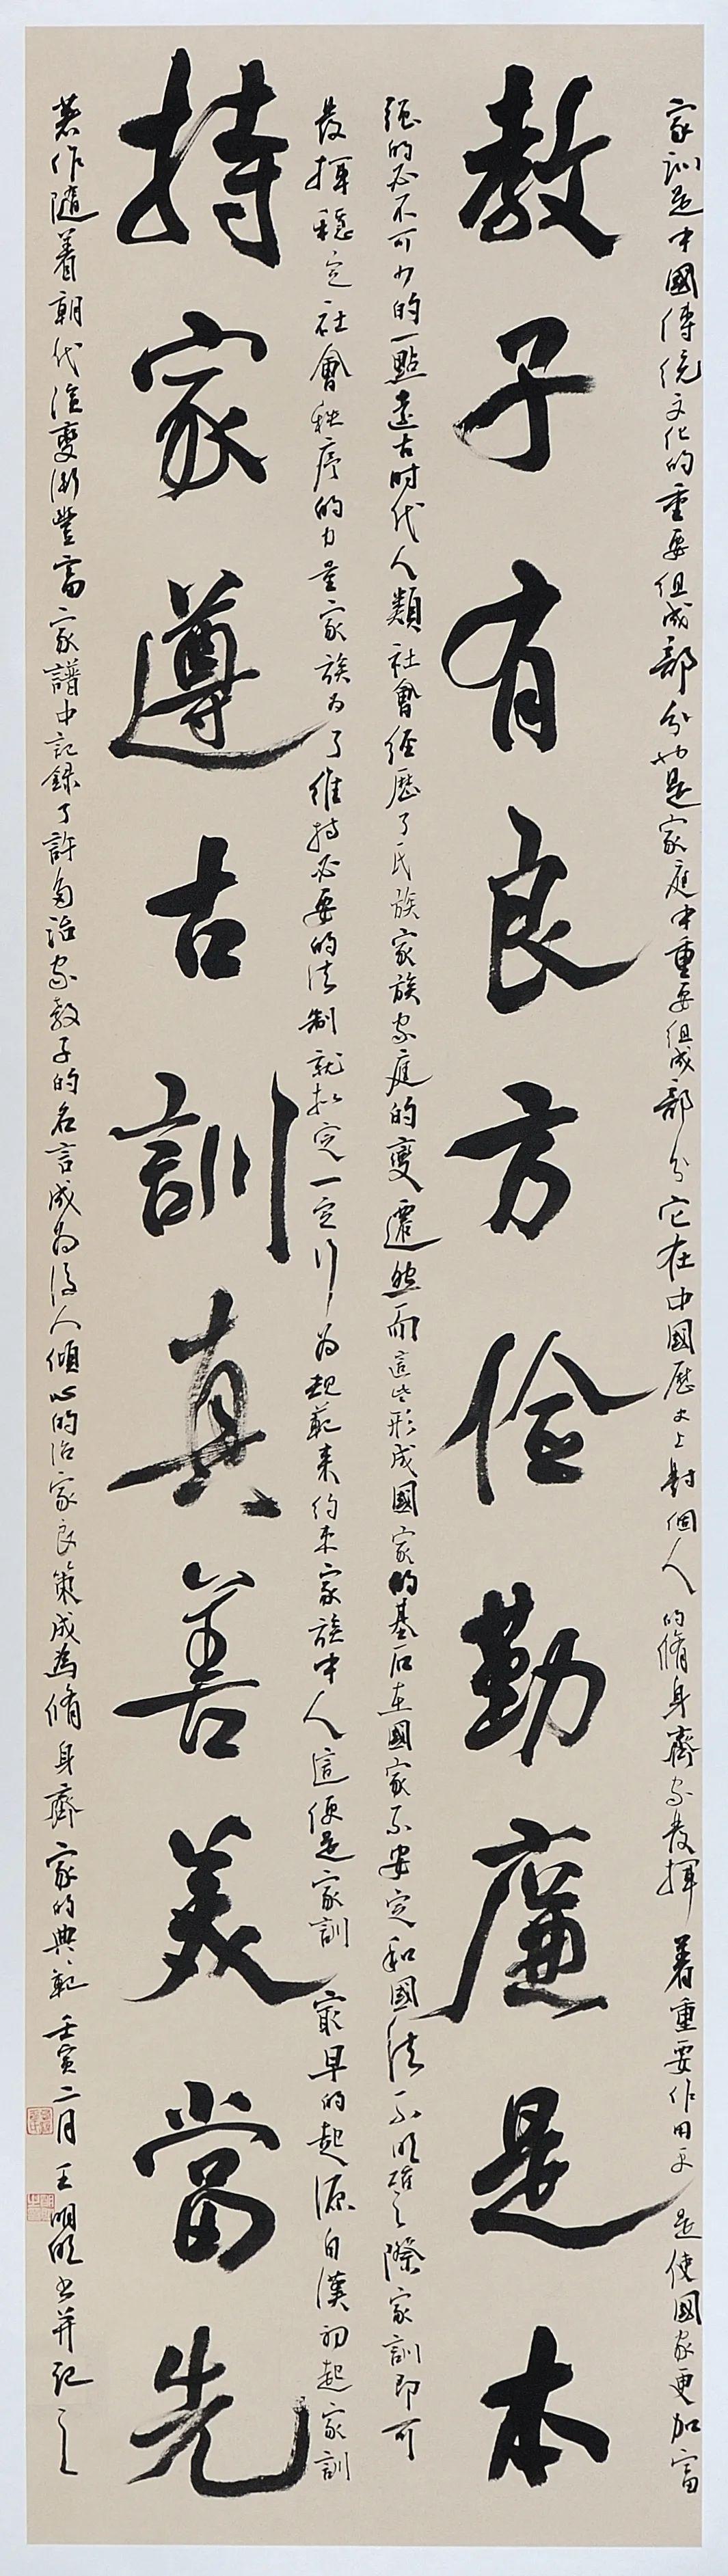 家訓是中國傳統文化的重要組成部分也是家庭中重要組成部分它在中國歷史上對個人的脩身齊家發揮着重要作用更是使國家更加富
教子有良方儉勤廉是本
強的必不可少的一點遠古时代人類社會经歷了氏族家族家庭的變遷然而這些形成國家的基石在國家不安定和國法不明確之際家訓即可
發揮穩定社會秩序的力量家族为了維持必要的法制就拟定一定行为規範来约束家族中人這便是家訓最早的起源自漢初起家訓
持家遵古訓真善美當先
著作隨着朝代演變漸豐富家譜中記録了許多治家教子的名言成为後人傾心的治家良策成為脩身齊家的典範壬寅二月王明明书并记之